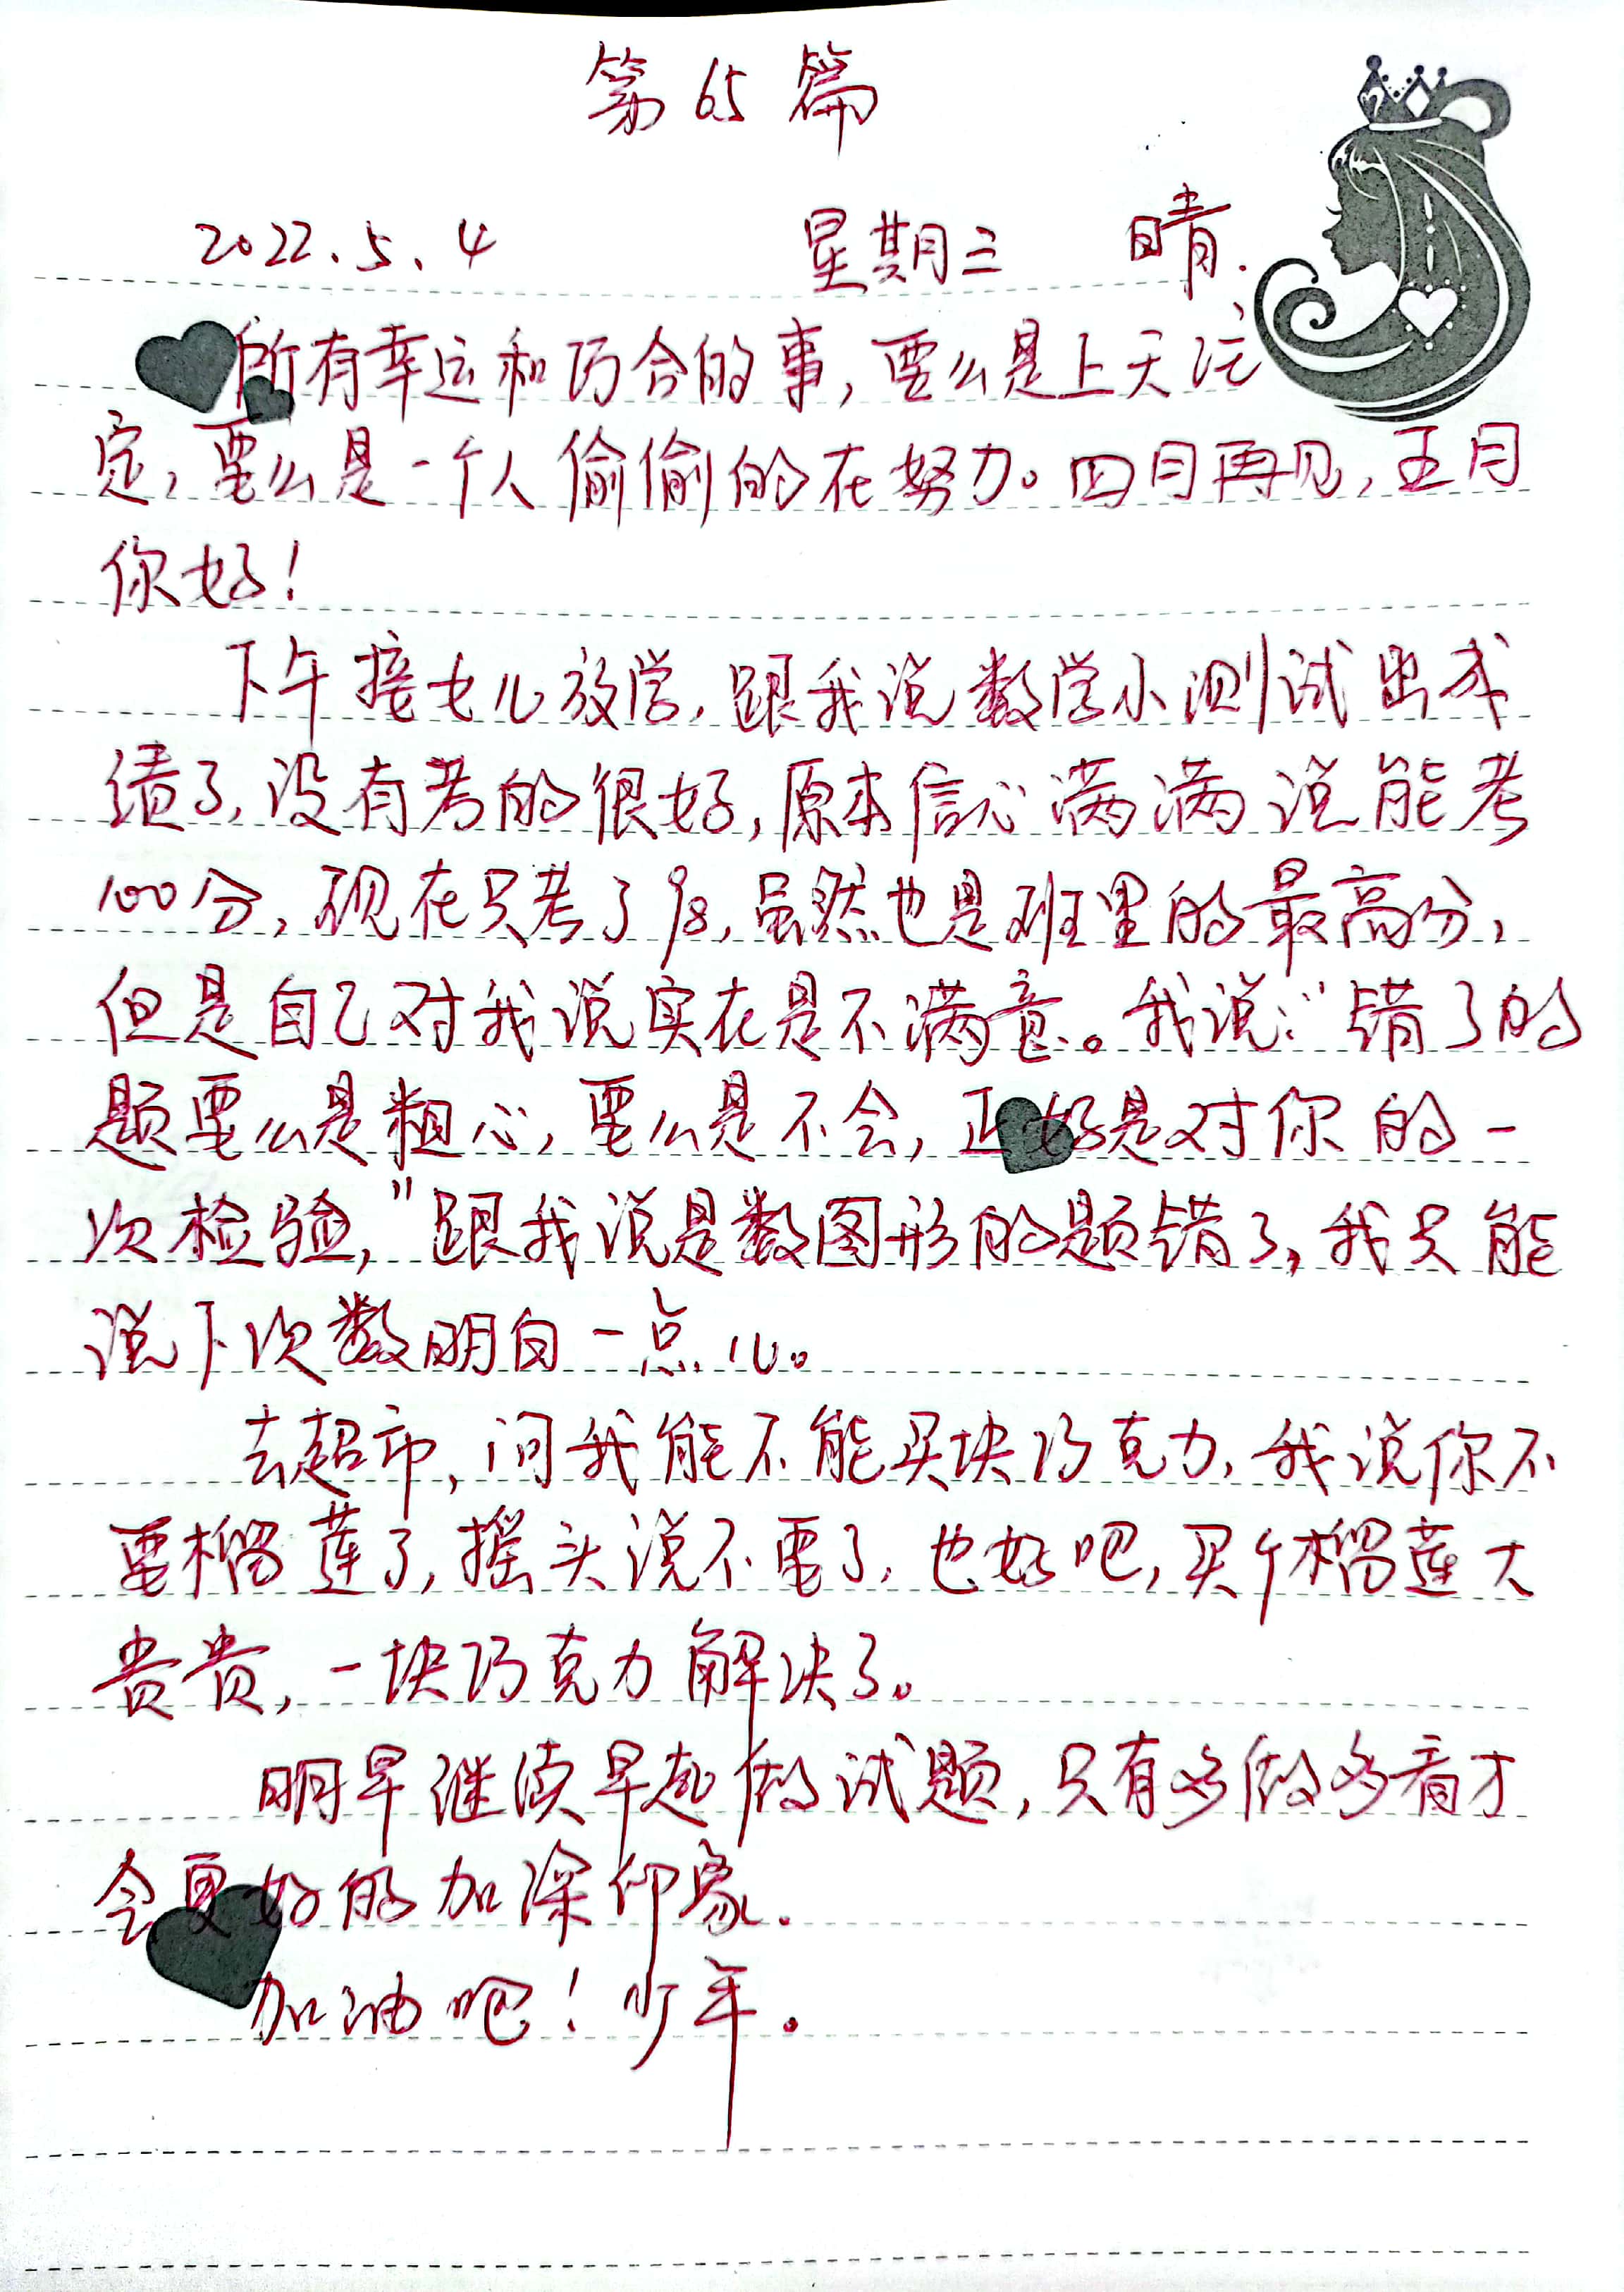 第65篇
2022.5.4 星期三 晴.
所有幸运和巧合的事,要么是上天注
定,要么是一个人偷偷的在努力。四月再见,五月
你好!
下午接女儿放学,跟我说数学小测试出成
绩了,没有考的很好,原本信心满满说能考
100分,现在只考了98,虽然也是班里的最高分,
但是自己对我说实在是不满意。我说:“错了的
题要么是粗心,要么是不会,正好是对你的一
次检验,”跟我说是数图形的题错了,我只能
说下次数明白一点儿。
去超市,问我能不能买块巧克力,我说你不
要榴莲了,摇头说不要了,也好吧,买个榴莲大
贵贵,一块巧克力解决了。
明早继续早起做试题,只有多做多看才
会更好的加深印象.
加油吧!少年.